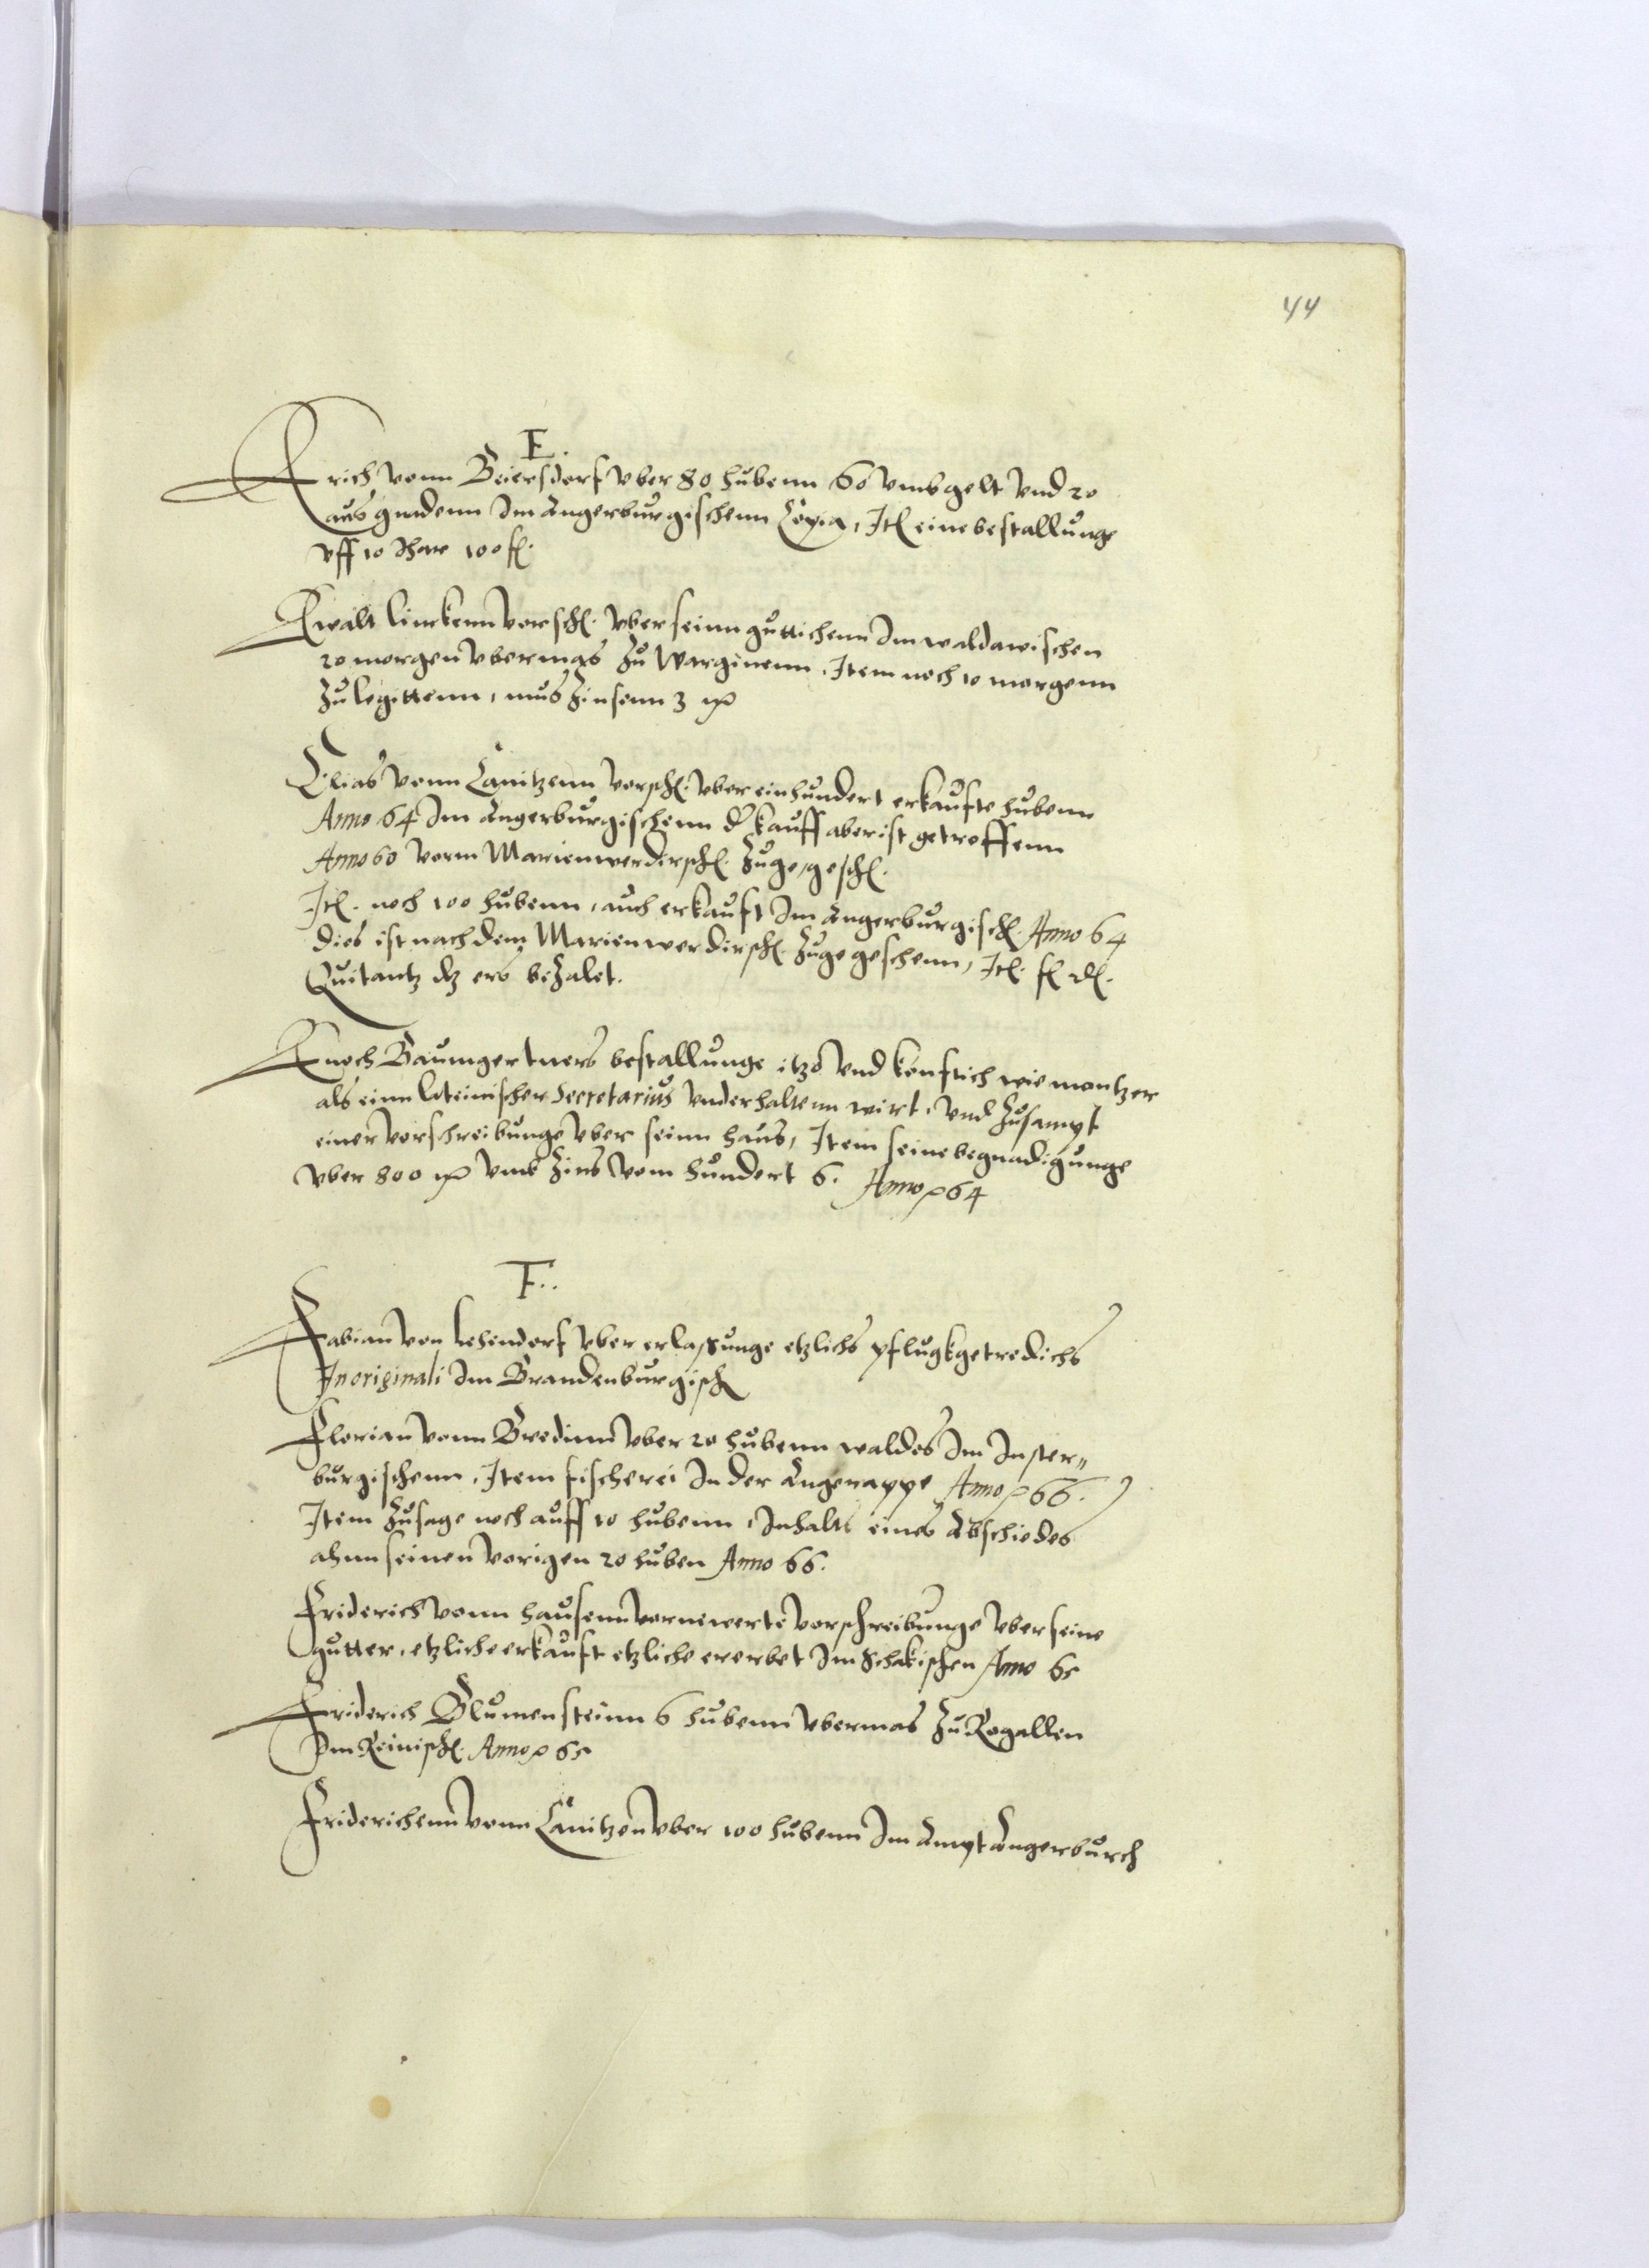 44
E.
Erich vonn Beiersdorf vber 80 hubenn 60 vmbs gelt vnd 20
aus gnadenn Im Angerburgischenn Copia, Itl eine bestallunge
vff 10 Jhare 100 fl.
Ewalt Linckenn vorschl. vber seinn guttichenn Im waldawischen
20 morgen vbermas zu Warginenn, Item noch 10 morgenn
zu legittenn, mus zinsenn 3 mr
Elias vonn Canitzenn vorschl. vber einhundert erkaufte hubenn
Anno 64 Im Angerburgischenn d' kauff aber ist getroffenn
Anno 60 vorm Marienwerdirschl. zuge, geschl.
Itl. noch 100 hubenn, auch erkauft Im Angerburgischl. Anno 64
dies ist nach dem Marienwerdirschl. zuge geschenn, Itl. fl dl.
Quitantz dz ers bezalet.
Enoch Baumgertners bestallunge itzo vnd konftich wie montzer
als einn lateinischer Secretarius vnderhaltenn wirt, vnd zusampt
einer vorschreibunge vber seinn haus, Item seine begnadigunge
vber 800 mr vmb Zins vom hundert 6. Anno 64
F..
Fabian von Lehendorf vber erlassunge etzlichs pflugkgetredichs
In originali Im Brandenburgisch
Florian vonn Bredinn vber 20 hubenn waldes Im Inster„
burgischenn, Item fischerei In der Angerappe Anno 66.
Item zusage noch auff 10 hubenn, Inhalts eines Abschiedes
ahnn seinen vorigen 20 huben Anno 66.
Friderich vonn hausenn vornewerte vorschreibunge vber seine
gutter, etzliche erkauft etzliche ererbet Im Schakischen Anno 65
Friderich Blumensteinn 6 hubenn vbermas zu Rogallen
Im Reinischl. Anno 65
Friderichenn vonn Canitzen vber 100 hubenn Im Ampt Angerburch